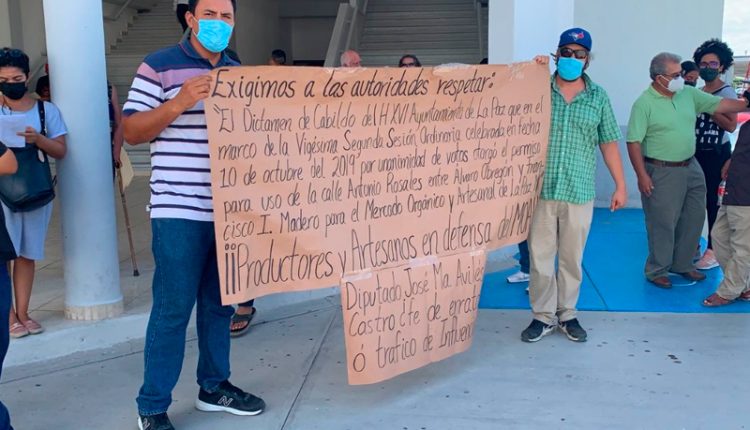 Exigimos a las autoridades respetar:
"El Dictamen de Cabildo del H XVI Ayuntamiento de La Paz que en el
marco de la Vigésima Segunda Sesión Ordinaria celebrada en fecha
10 de octubre del 2019" por unanimidad de votos otorgó el permiso
para uso de la calle Antonio Rosales entre Alvaro Obregón y Fran
cisco I. Madero para el Mercado Orgánico y Artesanal de La Paz
¡¡Productores y Artesanos en defensa del
Diputado José Ma. Aviles
Castro ¿fe de errata
ó trafico de Influen